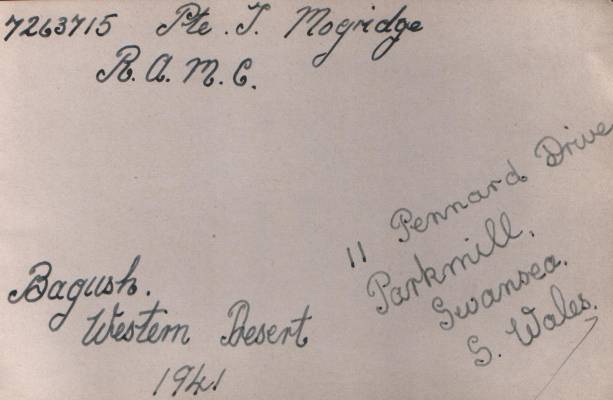 7263715 Pte. T. Mogridge
R.A.M.C.
Bagush.
Western Desert
1941
11 Pennard Drive
Parkmill.
Swansea.
S. Wales.